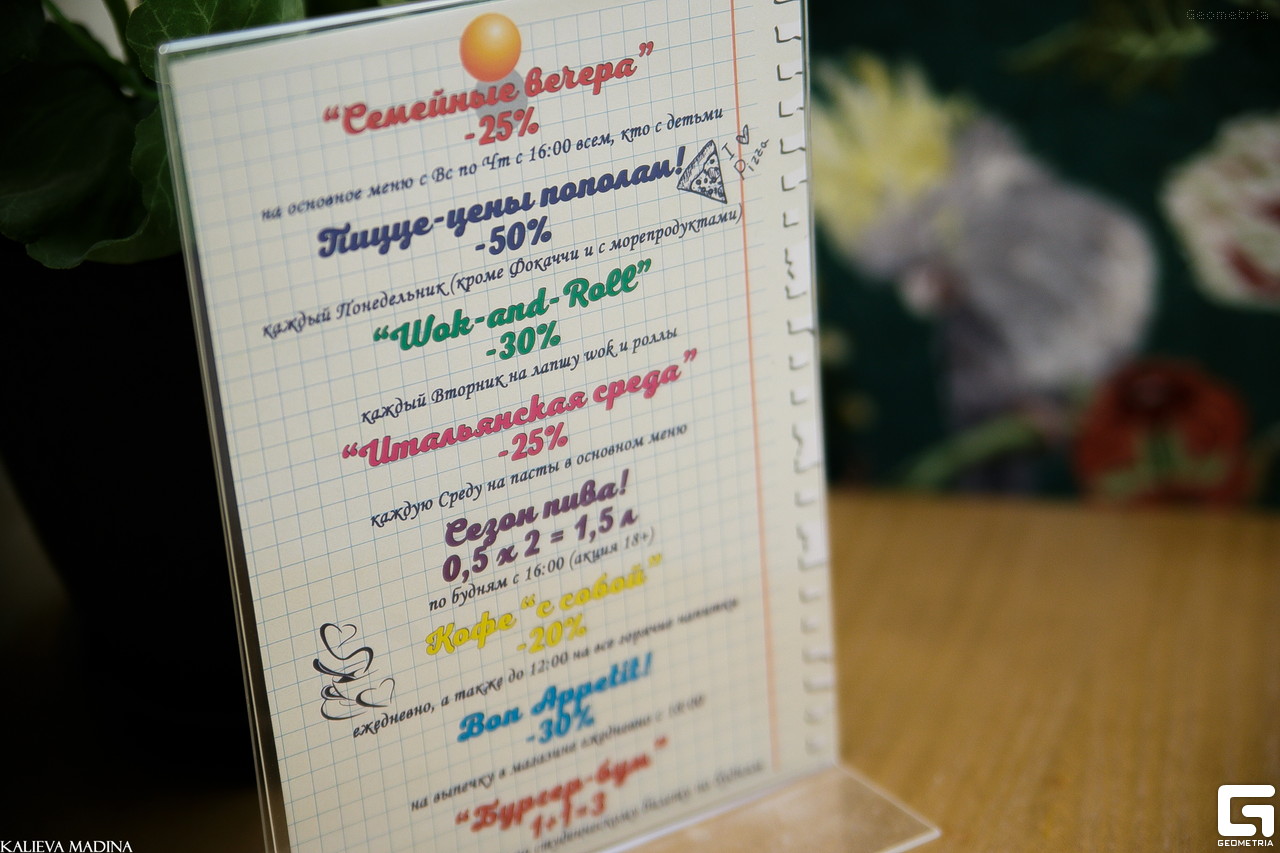 Geometria
“Семейные вечера”
-25%
на основное меню с Вс по Чт с 16:00 всем, кто с детьми
I
Pizza
Пицце-цены пополам!
-50%
каждый Понедельник (кроме Фокаччи и с морепродуктами)
“Wok-and-Roll”
-30%
каждый Вторник на лапшу wok и роллы
“Итальянская среда”
-25%
каждую Среду на пасты в основном меню
Сезон пива!
0,5 x 2 = 1,5 л
по будням с 16:00 (акция 18+)
Кофе “с собой”
-20%
ежедневно, а также до 12:00 на все горячие напитки
Bon Appetit!
-30%
на выпечку в магазине ежедневно с
“Бургер-бум”
1+1=3
студенческому билету по будням
KALIEVA MADINA
GEOMETRIA